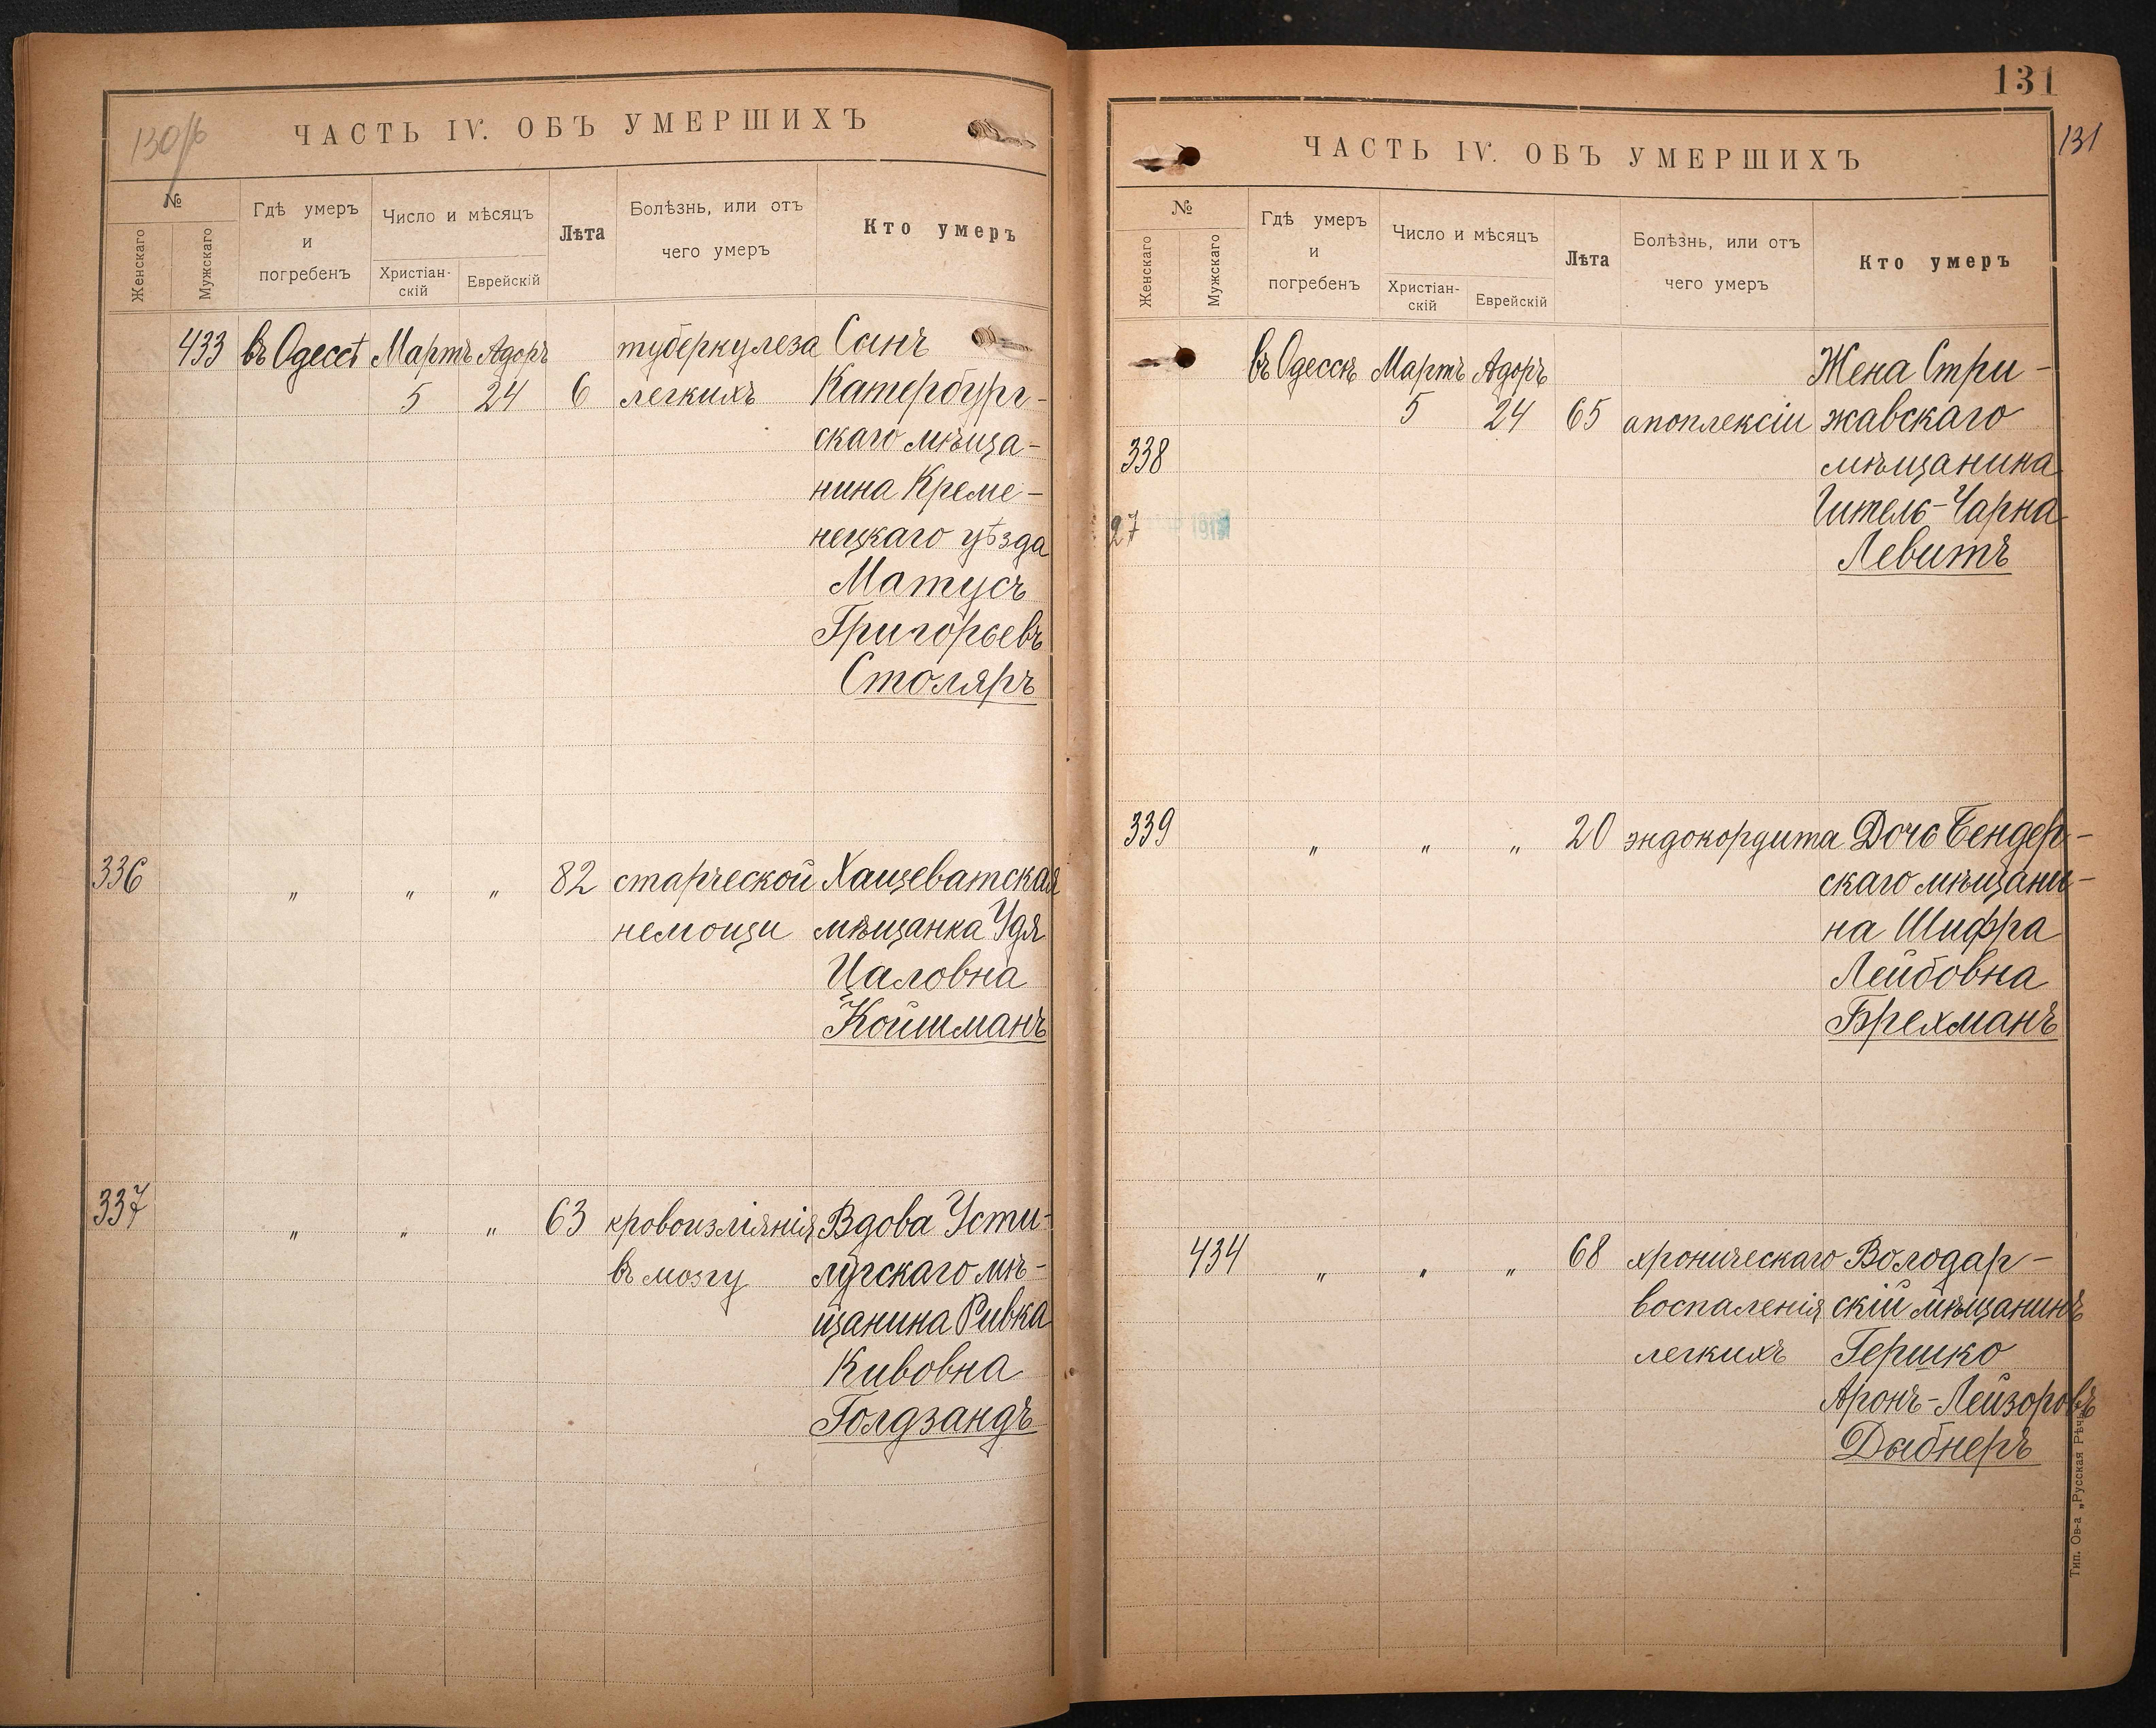 130 об
ЧАСТЬ IV. ОБЪ УМЕРШИХЪ
№
Женскаго
Мужскаго
Гдѣ умеръ
и
погребенъ
Число и мѣсяцъ
Христіан-
скій
Еврейскій
Лѣта
Болѣзнь, или отъ
чего умеръ
Кто умеръ
433 въ Одессѣ Мартъ Адоръ туберкулеза Сынъ
5 24 6 легкихъ Катербург-
скаго мѣща-
нина Креме-
нецкаго уѣзда
Матусъ
Григорьевъ
Столяръ
336 " " " 82 старческой Хащеватская
немощи мѣщанка Удя
Цаловна
Койшманъ
337 " " " 63 кровоизліянія Вдова Усти-
въ мозгу лугскаго мѣ-
щанина Ривка
Кивовна
Голдзандъ
131
131
ЧАСТЬ IV. ОБЪ УМЕРШИХЪ
№
Женскаго
Мужскаго
Гдѣ умеръ
и
погребенъ
Число и мѣсяцъ
Христіан-
скій
Еврейскій
Лѣта
Болѣзнь, или отъ
чего умеръ
Кто умеръ
въ Одессѣ Мартъ Адоръ Жена Стри-
5 24 65 апоплексіи жавскаго
338 мѣщанина
27 Гитель-Чарна
Левитъ
339 " " " 20 эндокордита Дочь Бендер-
скаго мѣщани-
на Шифра
Лейбовна
Брехманъ
434 " " " 68 хроническаго Володар-
воспаленія скій мѣщанинъ
легкихъ Гершко
Аронъ-Лейзоровъ
Дыбнеръ
Тип. Ов-а „Русская Рѣчь